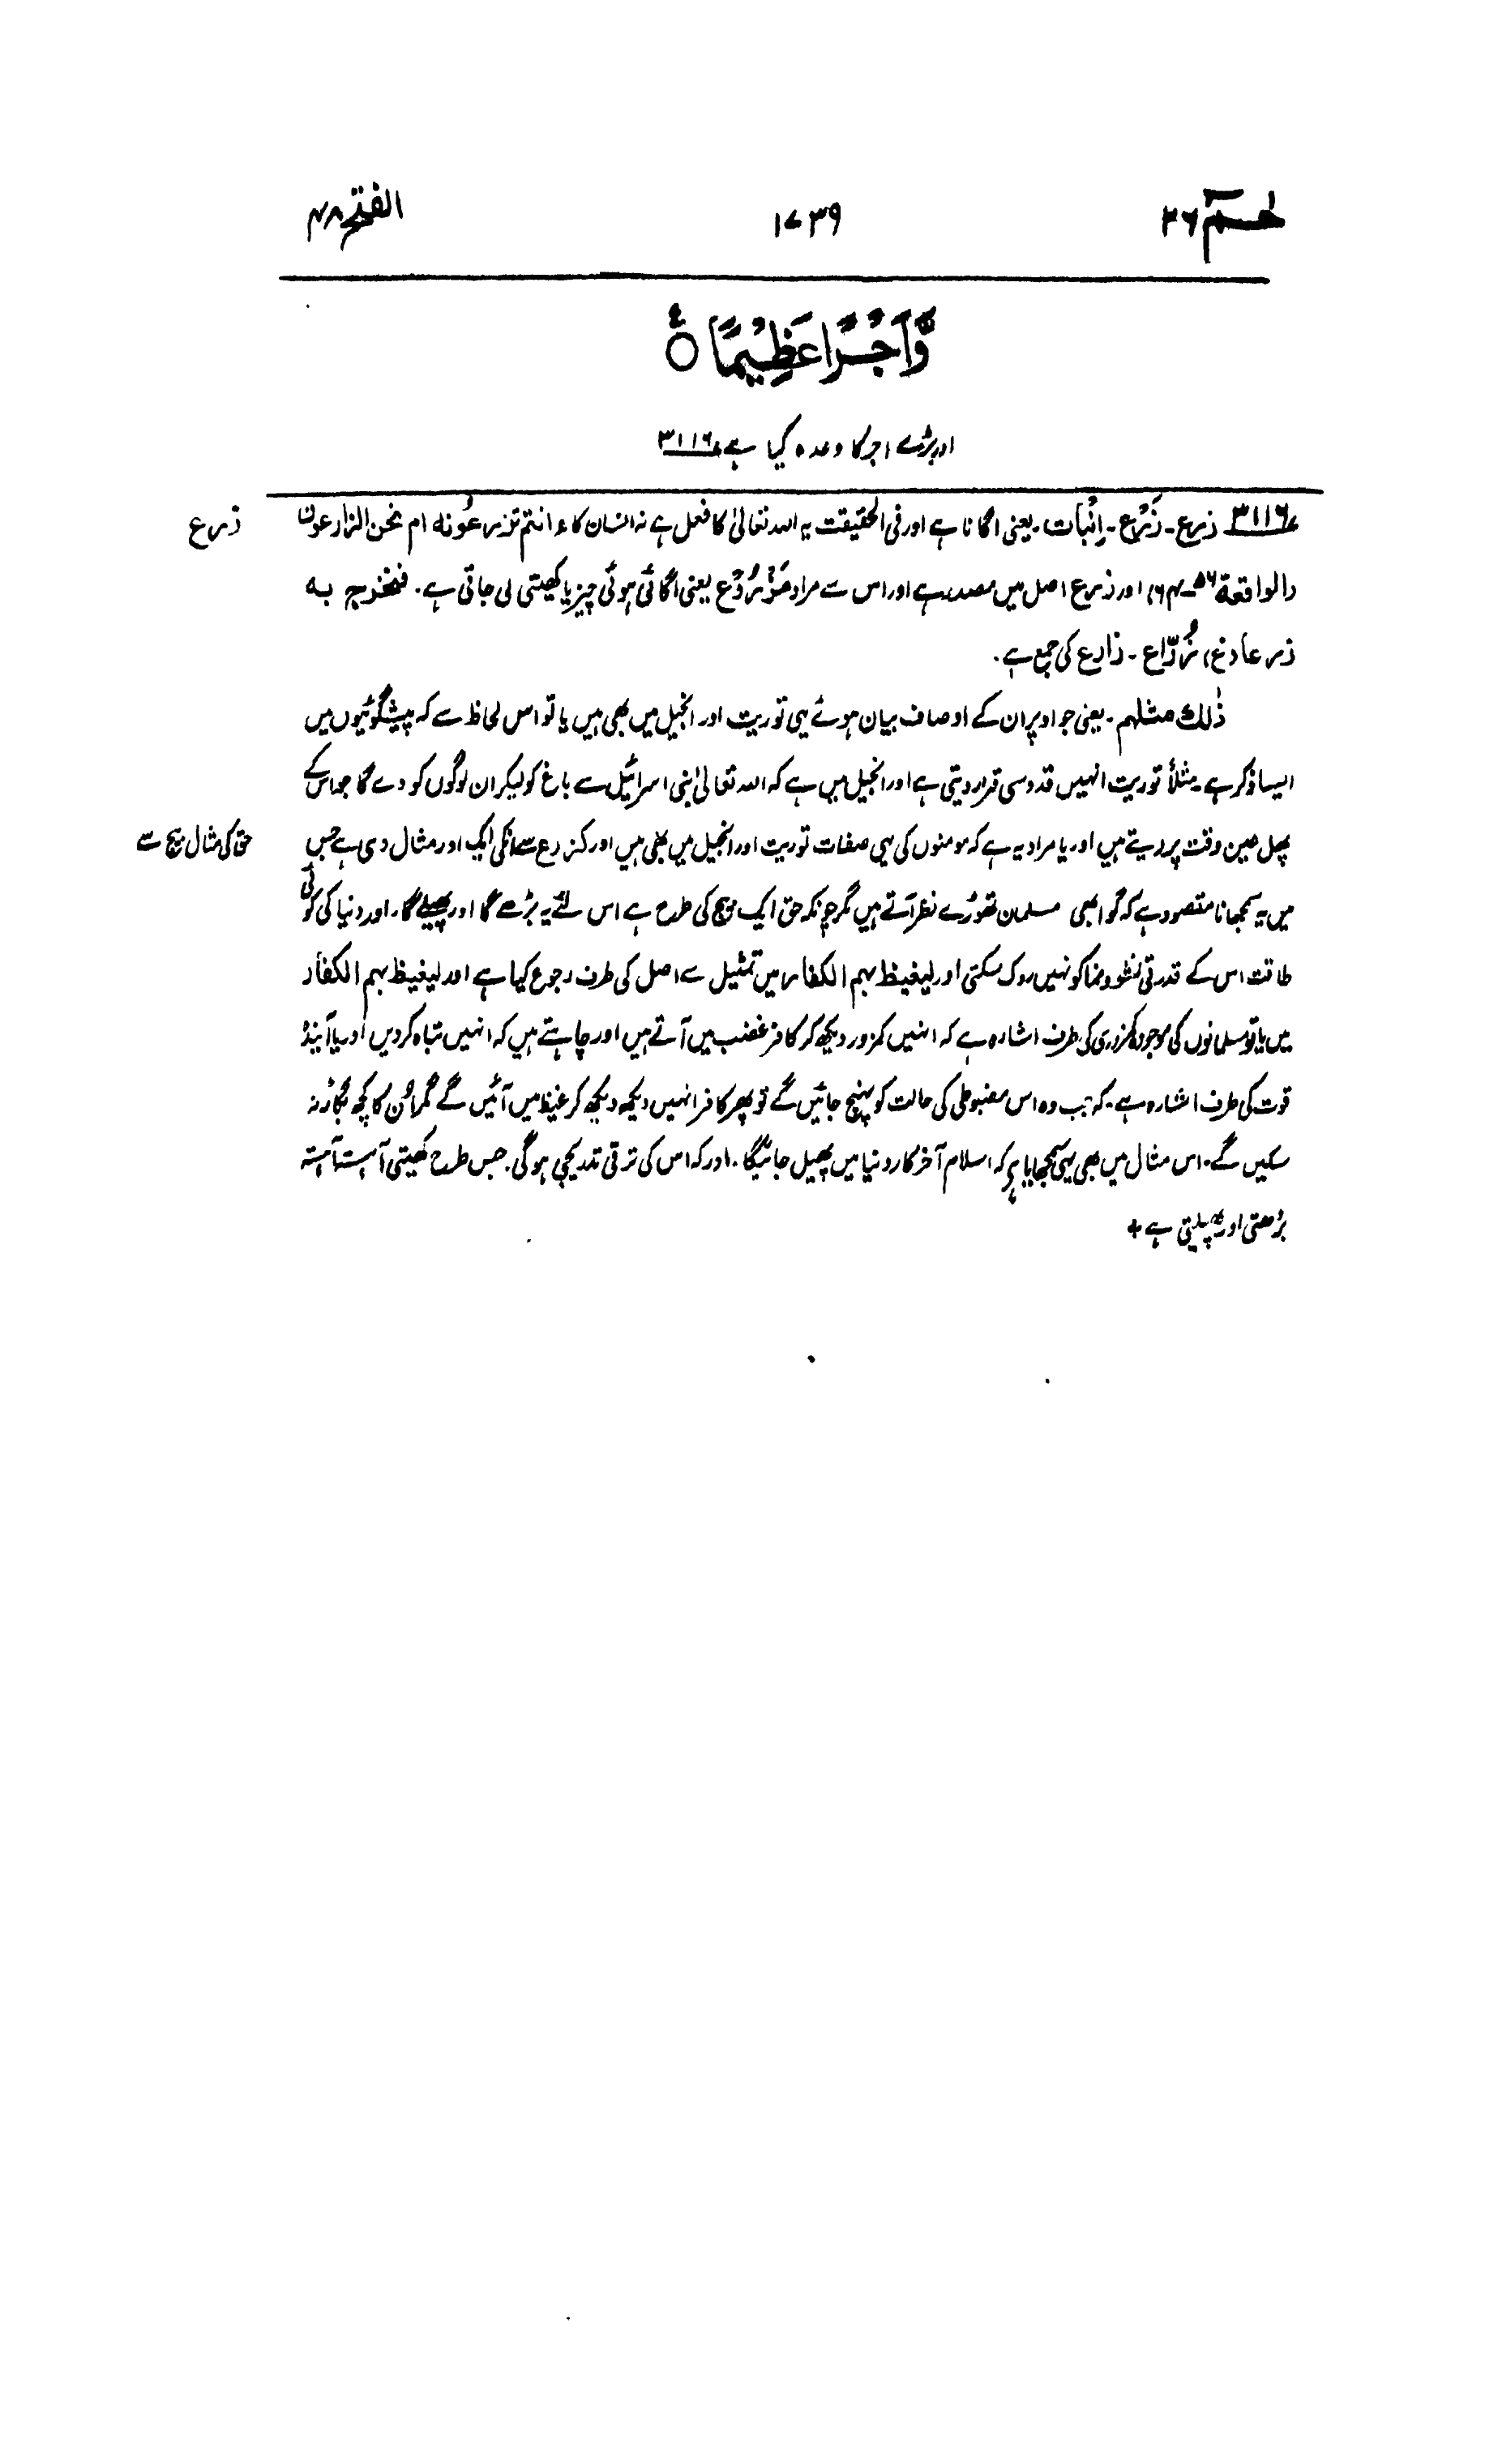 حٰـمٓ ۲۶
۱۷۳۹
الفتح ۴۸
وَّاَجْرًا عَظِيْمًا ۝ ع
اور بڑے اجر کا وعدہ کیا ہے ۳۱۱۶
۳۱۱۶ زرع - زَرْع - اِنْبَات - یعنی اگانا ہے اور فی الحقیقت یہ اللہ تعالیٰ کا فعل ہے نہ انسان کا ءانتم تزرعُونہ ام نحن الزارعون
زرع
(الواقعة ۵۶ - ۶۴) اور زرع اصل میں مصدر ہے اور اس سے مراد مَزْرُوْع یعنی اگائی ہوئی چیز یا کھیتی لی جاتی ہے. فنخرج به
زرعا دغ) زُرَّاع - زارع کی جمع ہے.
ذٰلك مثلهم - یعنی جو اوپر ان کے اوصاف بیان ہوئے یہی توریت اور انجیل میں بھی ہیں یا تو اس لحاظ سے کہ پیشگوئیوں میں
ایسا ذکر ہے - مثلاً توریت انہیں قدوسی قرار دیتی ہے اور انجیل میں ہے کہ اللہ تعالیٰ بنی اسرائیل سے باغ کو لیکر ان لوگوں کو دے گا جو اس کے
پھل عین وقت پر دیتے ہیں اور یا مراد یہ ہے کہ مومنوں کی یہی صفات توریت اور انجیل میں بھی ہیں اور کزرع سے انکی ایک اور مثال دی ہے جس
حق کی مثال بیج سے
میں یہ سمجھانا مقصود ہے کہ گو ابھی مسلمان تھوڑے نظر آتے ہیں مگر چونکہ حق ایک بیج کی طرح ہے اس لئے یہ بڑھے گا اور پھیلے گا. اور دنیا کی کوئی
طاقت اس کے قدرتی نشو و نما کو نہیں روک سکتی اور لیغیظ بہم الکفار میں تمثیل سے اصل کی طرف رجوع کیا ہے اور لیغیظ بہم الکفار
میں یا تو مسلمانوں کی موجودہ کمزوری کی طرف اشارہ ہے کہ انہیں کمزور دیکھ کر کافر غضب میں آتے ہیں اور چاہتے ہیں کہ انہیں تباہ کر دیں اور یا آیندہ
قوت کی طرف اشارہ ہے - کہ جب وہ اس مضبوطی کی حالت کو پہنچ جائیں گے تو پھر کافر انہیں دیکھ دیکھ کر غیظ میں آئیں گے مگر اُن کا کچھ بگاڑ نہ
سکیں گے. اس مثال میں بھی یہی سمجھایا ہے کہ اسلام آخر کار دنیا میں پھیل جائیگا. اور کہ اس کی ترقی تدریجی ہوگی. جس طرح کھیتی آہستہ آہستہ
بڑھتی اور پھیلتی ہے +